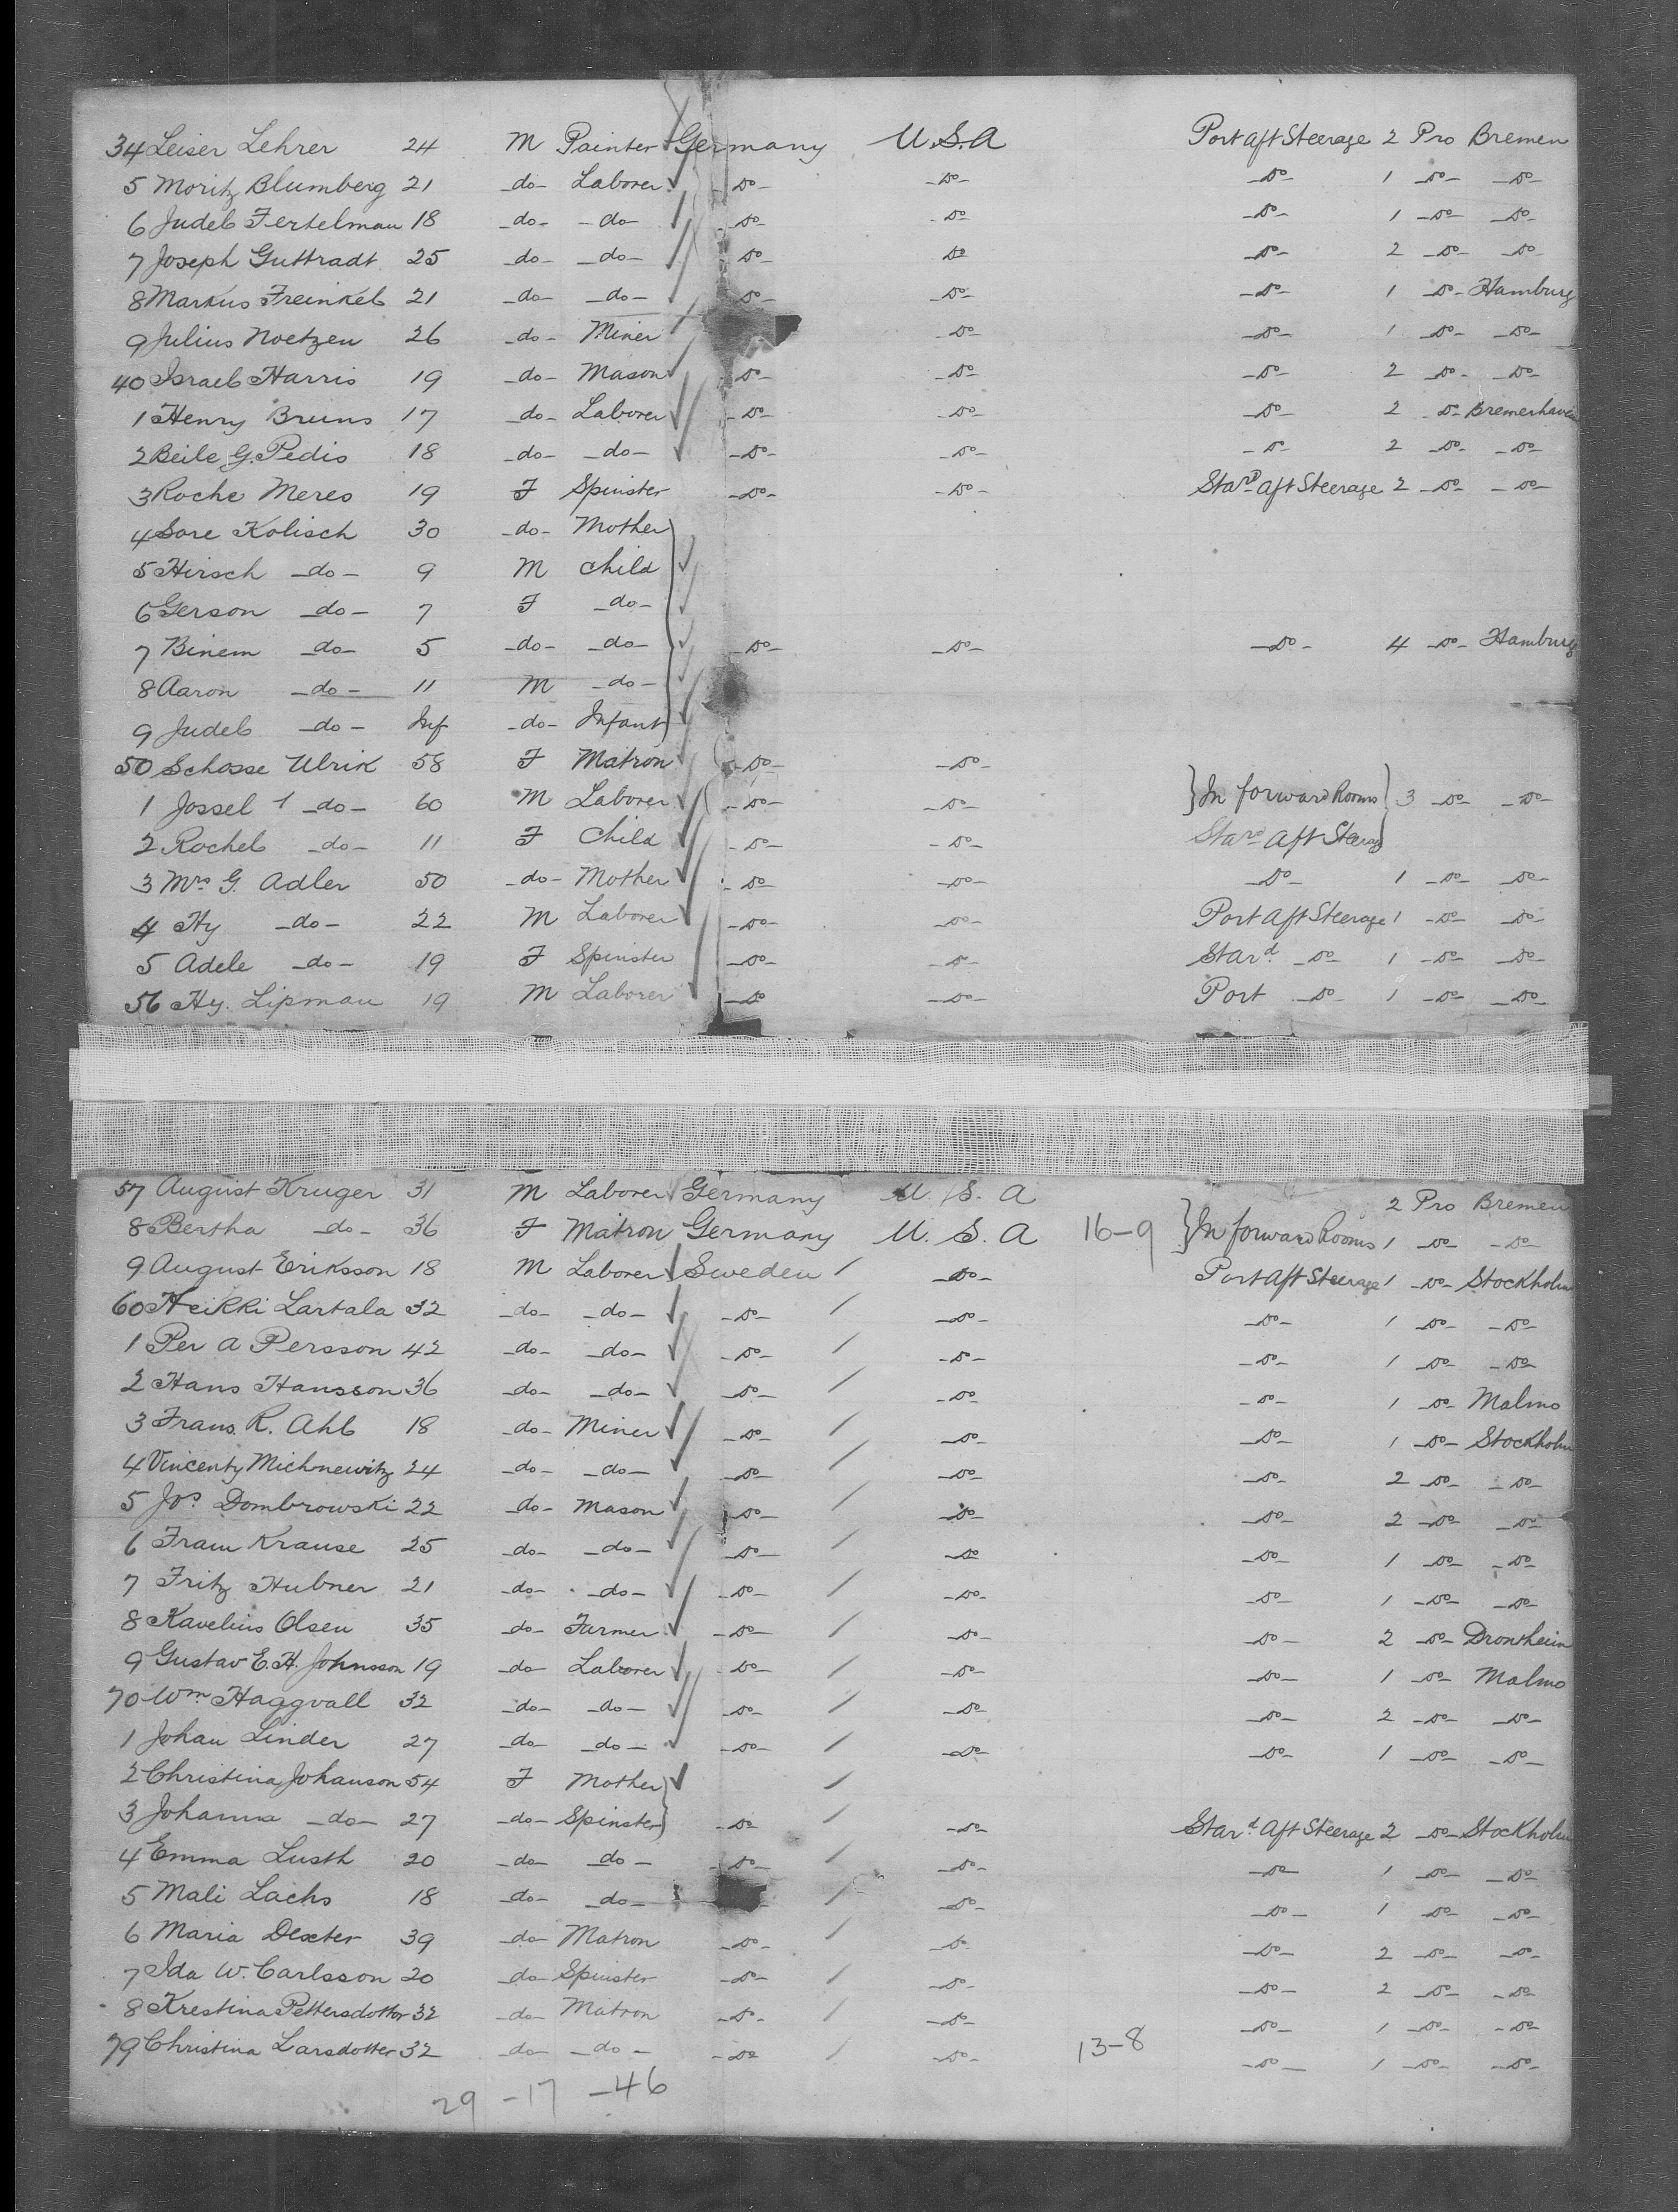 34 Leiser Lehrer 24 M Painter Germany U.S.A Port aft Steerage 2 Pro Bremen
5 Moritz Blumberg 21 -do- Laborer -do- -do- -do- 1 -do- -do-
6 Judel Fertelman 18 -do- -do- -do- -do- -do- 1 -do- -do-
7 Joseph Guttradt 25 -do- -do- -do- do -do- 2 -do- -do-
8 Markus Freinkel 21 -do- -do- -do- -do- -do- 1 -do- Hamburg
9 Julius Noetzen 26 -do- Miner -do- -do- 1 -do- -do-
40 Israel Harris 19 -do- Mason -do- -do- -do- 2 -do- -do-
1 Henry Bruns 17 -do- Laborer -do- -do- -do- 2 -do- Bremerhaven
2 Beile G. Pedis 18 -do- -do- -do- -do- -do- 2 -do- -do-
3 Roche Meres 19 F Spinster -do- -do- Star^d aft Steerage 2 -do- -do-
4 Sore Kolisch 30 -do- Mother
5 Hirsch -do- 9 M Child
6 Gerson -do- 7 F -do-
7 Binem -do- 5 -do- -do- -do- -do- -do- 4 -do- Hamburg
8 Aaron -do- 11 M -do-
9 Judel -do- Inf -do- Infant
50 Schosse Ulrik 58 F Matron -do- -do-
1 Jossel -do- 60 M Laborer -do- -do- } In forward Rooms } 3 -do- -do-
2 Rochel -do- 11 F Child -do- -do- Star^d Aft Steerag
3 Mrs G. Adler 50 -do- Mother -do- -do- -do- 1 -do- -do-
4 Hy -do- 22 M Laborer -do- -do- Port aft Steerage 1 -do- -do-
5 Adele -do- 19 F Spinster -do- -do- Star^d -do- 1 -do- -do-
56 Hy. Lipman 19 M Laborer -do- -do- Port -do- 1 -do- -do-
57 August Kruger 31 M Laborer Germany U. S. A 2 Pro Bremen
8 Bertha -do- 36 F Matron Germany U. S. A 16-9 } In forward Rooms 1 -do- -do-
9 August Eriksson 18 M Laborer Sweden / -do- Port Aft Steerage 1 -do- Stockholm
60 Heikki Lartala 32 -do- -do- -do- / -do- -do- 1 -do- -do-
1 Per A Persson 42 -do- -do- -do- / -do- -do- 1 -do- -do-
2 Hans Hansson 36 -do- -do- -do- / -do- -do- 1 -do- Malmo
3 Frans. R. Ahl 18 -do- Miner -do- / -do- -do- 1 -do- Stockholm
4 Vincenty Michnewitz 24 -do- -do- -do- / -do- -do- 2 -do- -do-
5 Jos Dombrowski 22 -do- Mason -do- / -do- -do- 2 -do- -do-
6 Fram Krause 25 -do- -do- -do- / -do -do- 1 -do- -do-
7 Fritz Hubner 21 -do- -do- -do- / -do- -do- 1 -do- -do-
8 Kavelius Olsen 35 -do- Farmer -do- / -do- -do- 2 -do- Drontheim
9 Gustav E. H. Johnsson 19 -do- Laborer -do- / -do- -do- 1 -do Malmo
70 Wm Haggvall 32 -do- -do- -do- / -do- -do- 2 -do- -do-
1 Johan Linder 27 -do- -do- -do- / -do- -do- 1 -do- -do-
2 Christina Johanson 54 F Mother /
3 Johanna -do- 27 -do- Spinster -do- / -do- Star^d Aft Steerage 2 -do- Stockholm
4 Emma Lusth 20 -do- do- -do- / -do- -do- 1 -do- -do-
5 Mali Lachs 18 -do- -do- / -do- -do- 1 -do- -do-
6 Maria Dexter 39 -do- Matron -do- / -do- -do- 2 -do- -do-
7 Ida W. Carlsson 20 -do- Spinster -do- / -do- -do- 2 -do- -do-
8 Krestina Pettersdotter 32 -do- Matron -do- / -do- -do- 1 -do- -do-
79 Christina Larsdotter 32 -do- -do- -do- / -do- 13-8 -do- 1 -do- -do-
29 -17 -46